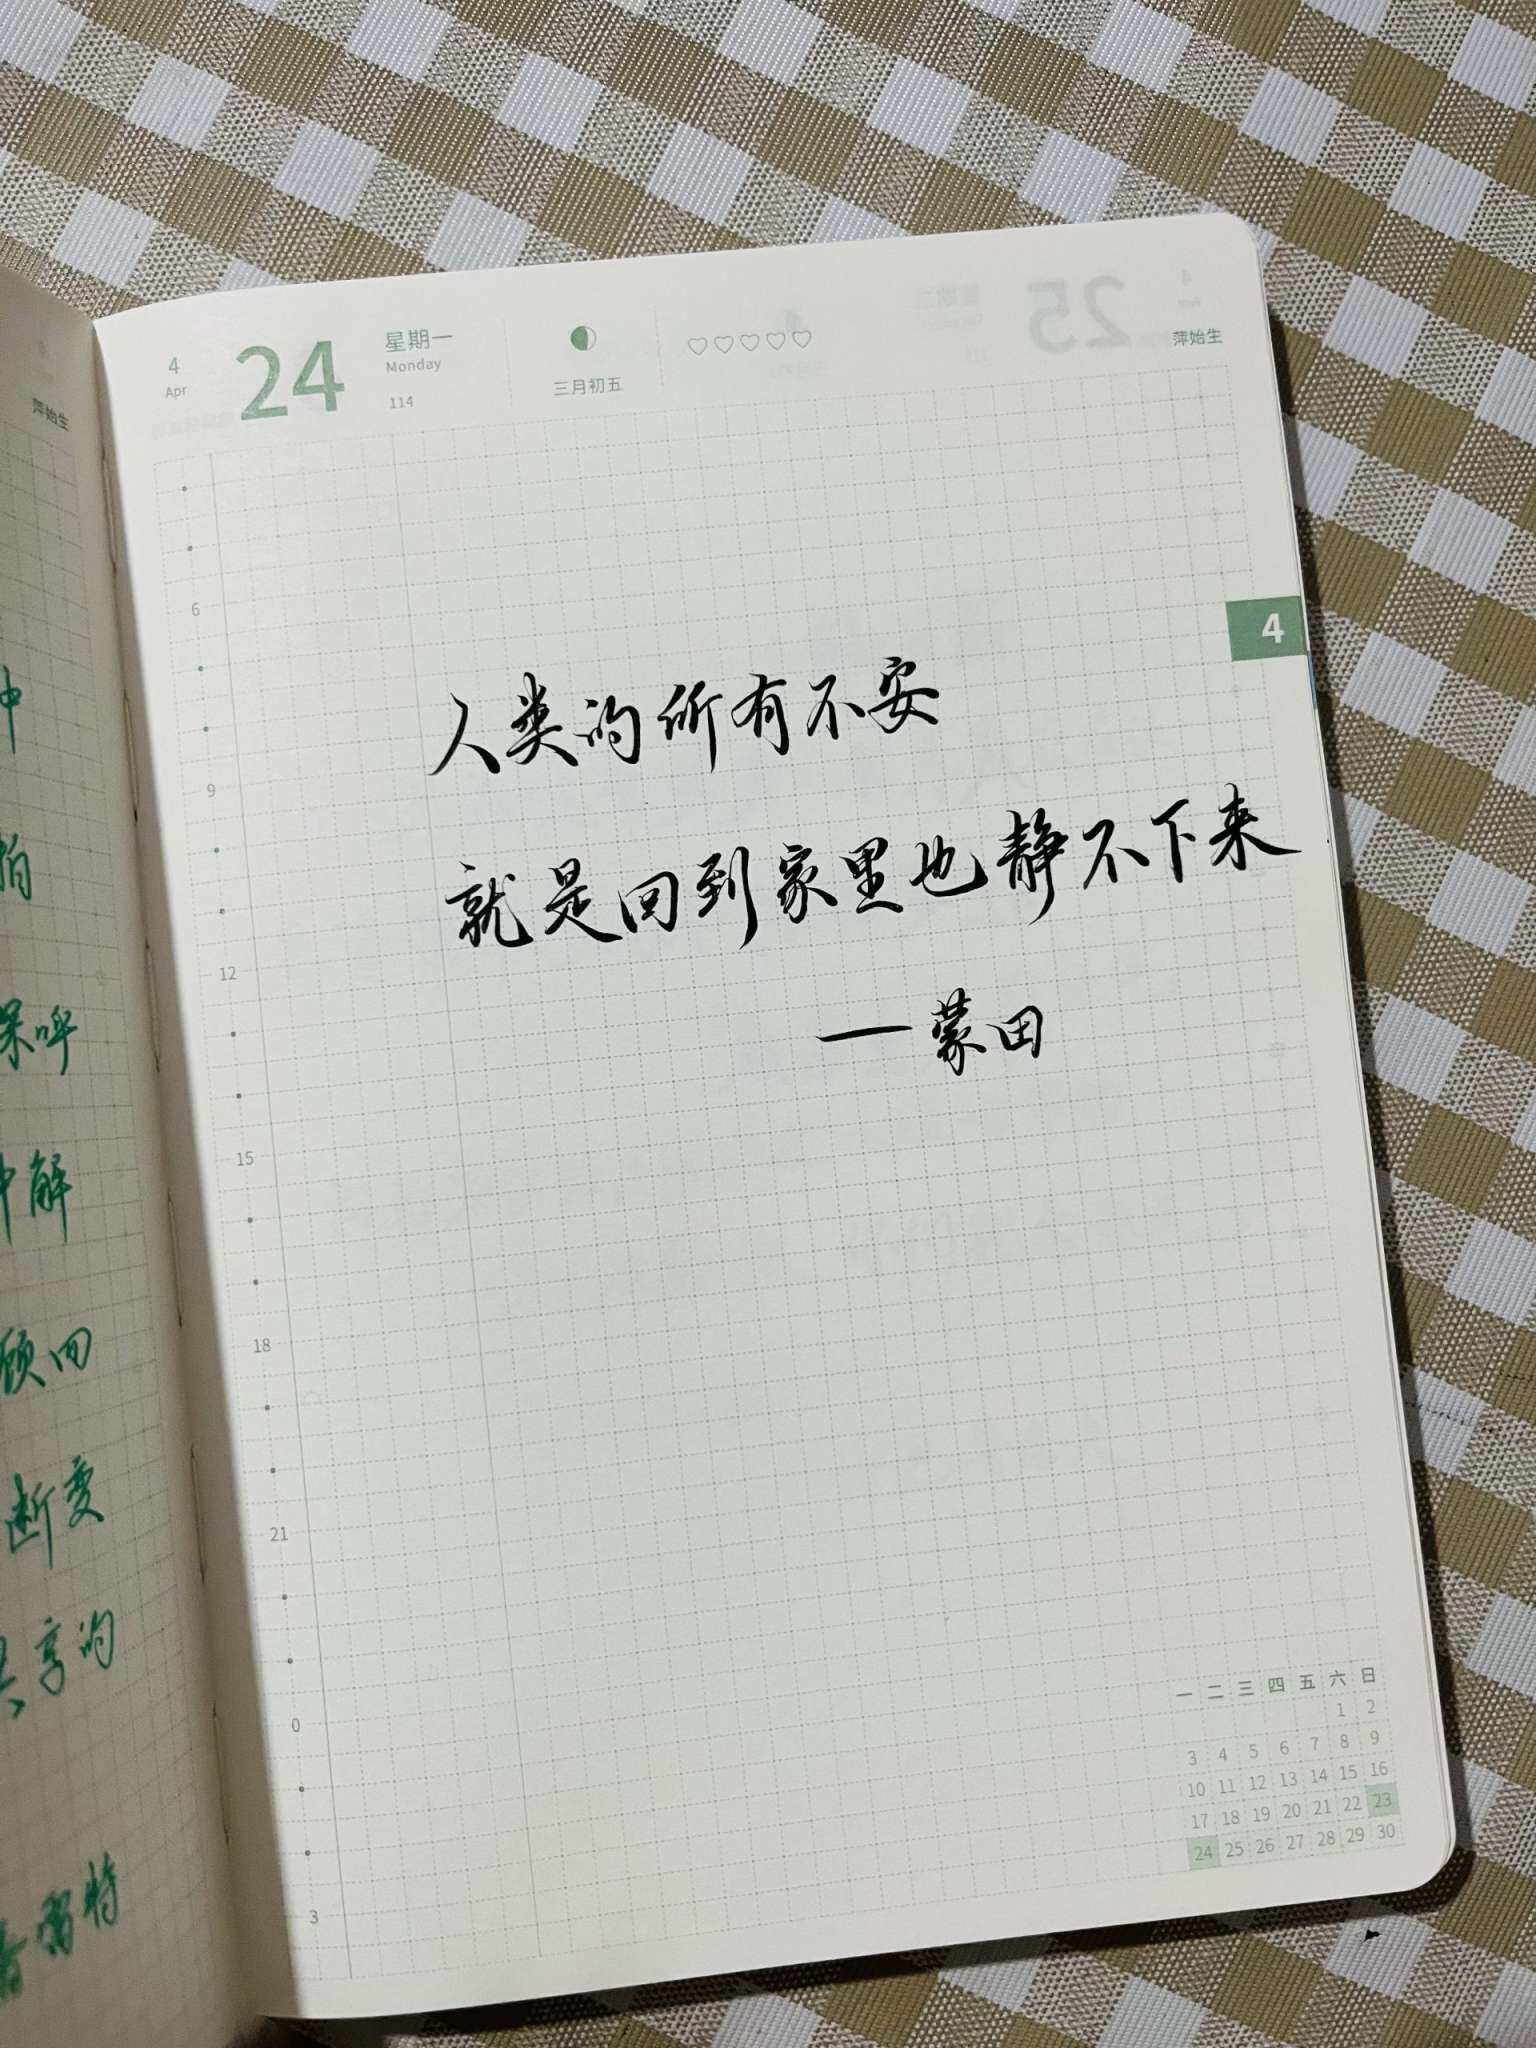 中
拍
呆呼
中解
顾四
断变
共享的
雷特
萍始生
4
Apr
24
星期一
Monday
114
三月初五
萍始生
4
6
9
12
15
18
21
0
3
人类的所有不安
就是回到家里也静不下来
一蒙田
一 二 三 四 五 六 日
1 2
3 4 5 6 7 8 9
10 11 12 13 14 15 16
17 18 19 20 21 22 23
24 25 26 27 28 29 30